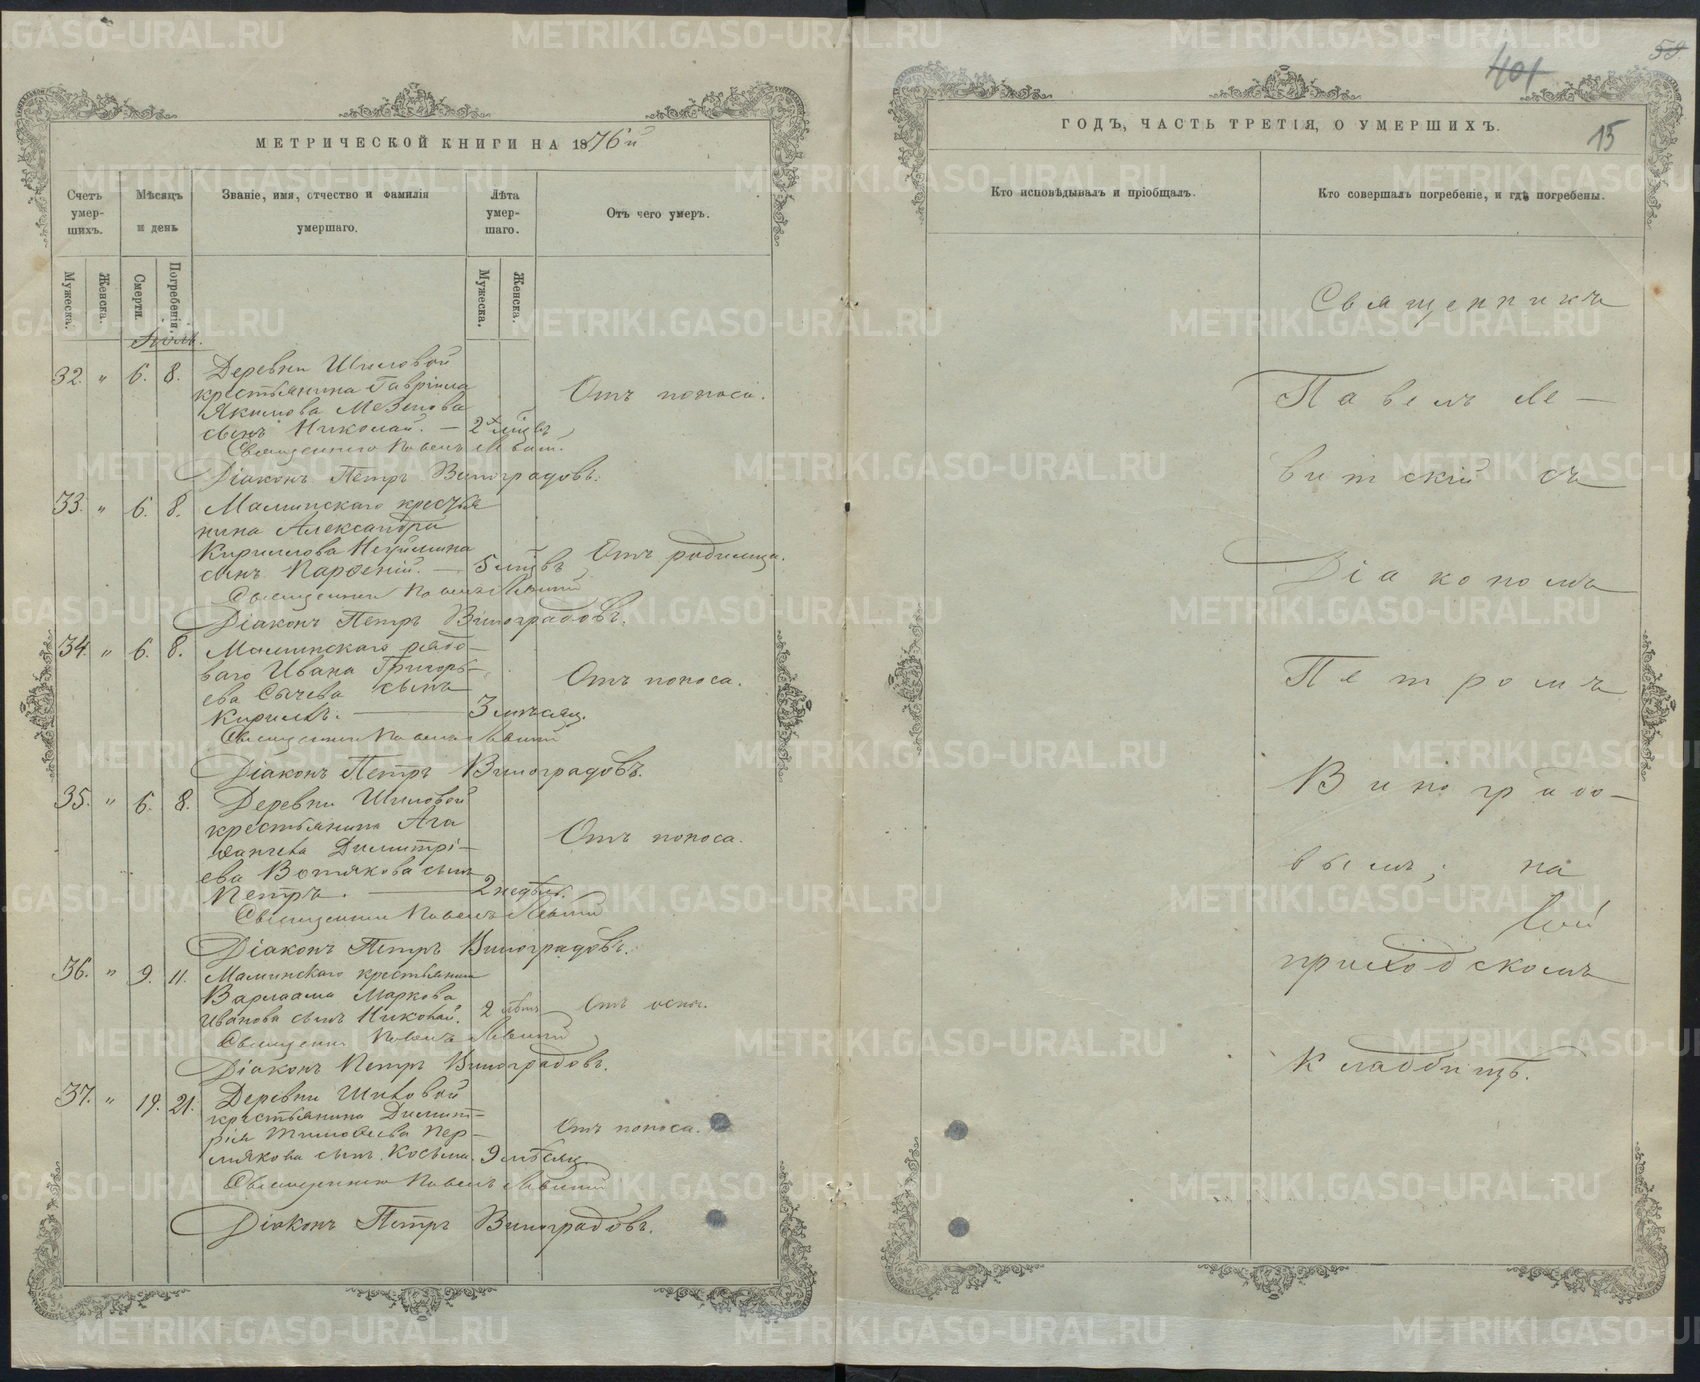 МЕТРИЧЕСКОЙ КНИГИ НА 1876й
Счетъ умер-шихъ.
Мѣсяцъ и день
Званіе, имя, отчество и фамилія умершаго.
Лѣта умер-шаго.
Отъ чего умеръ.
Мужеска.
Женска.
Смерти.
Погребенія.
Мужеска.
Женска.
32. " 6. 8. Деревни Шиловой
крестьянина Гавріила
Якимова Мезенова
сынъ Николай. — 2 мцвъ
Отъ поноса.
Священникъ Павелъ Левитскій
Діаконъ Петръ Виноградовъ.
33. " 6. 8. Маминскаго кресть
нина Александра
Кириллова
сынъ Парфеній. — 5 мцвъ
Отъ родимца.
Священникъ Павелъ Левитскій
Діаконъ Петръ Виноградовъ.
34. " 6. 8. Маминскаго рядо-
ваго Ивана Григорь-
ева Сычева сынъ
Кириллъ. — 3 мѣсяц.
Отъ поноса.
Священникъ Павелъ Левитскій
Діаконъ Петръ Виноградовъ.
35. " 6. 8. Деревни Шиловой
крестьянина Ага
фангела Димитрі-
ева Вотякова сынъ
Петръ. — 2 недѣли.
Отъ поноса.
Священникъ Павелъ Левитскій
Діаконъ Петръ Виноградовъ.
36. " 9. 11. Маминскаго крестьянина
Варлаама Маркова
Иванова сынъ Николай. 2 лѣтъ
Отъ оспы.
Священникъ Павелъ Левитскій
Діаконъ Петръ Виноградовъ.
37. " 19. 21. Деревни Шиловой
крестьянина Димит-
рія Тимофеева Пер-
мякова сынъ Косьма. 9 мѣсяц.
Отъ поноса.
Священникъ Павелъ Левитскій
Діаконъ Петръ Виноградовъ.
59
401
ГОДЪ, ЧАСТЬ ТРЕТІЯ, О УМЕРШИХЪ.
15
Кто исповѣдывалъ и пріобщалъ.
Кто совершалъ погребеніе, и гдѣ погребены.
Священникъ
Павелъ Ле-
витскій съ
Діакономъ
Петромъ
Виноградо-
вымъ; на
приходскомъ
кладбищѣ.
METRIKI.GASO-URAL.RU